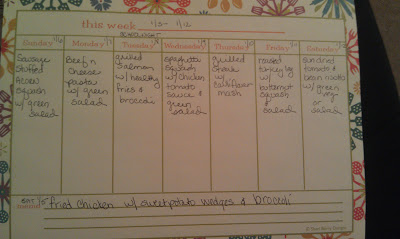 this week 1/5- 1/12
Sunday 1/6 Monday 1/7 Tuesday 1/8 Wednesday 1/9 Thursday 1/10 Friday Saturday
Sausage
Stuffed
Acorn
Squash
w/ green
salad
Beef n
cheese
pasta
w/ green
salad
grilled
salmon
w/ healthy
fries &
broccoli
spaghetti
squash
w/ chicken
tomato
sauce &
green
salad
grilled
steak
w/
cauliflower
mash
roasted
turkey leg
w/
butternut
squash
& salad
sundried
tomato &
bean risotto
w/ green
veg
or
salad
SAT 1/5
fried chicken w/ sweet potato wedges & broccoli